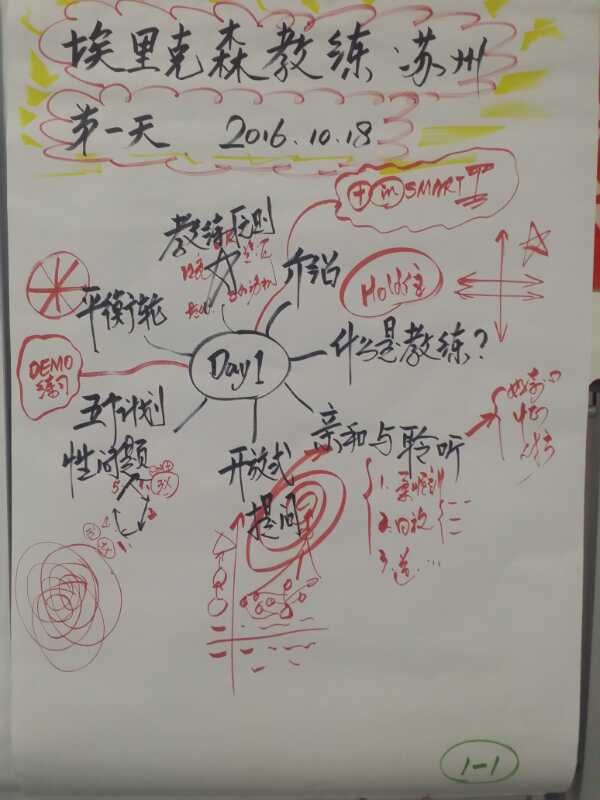 埃里克森教练 苏州
第一天 2016.10.18
+ in SMART
教练原则
介绍
Hold住
平衡轮
Day 1
什么是教练?
DEMO
练习
五个计划
性问题
开放式
提问
亲和与聆听
1.
2.回放
3.
3X
1-1